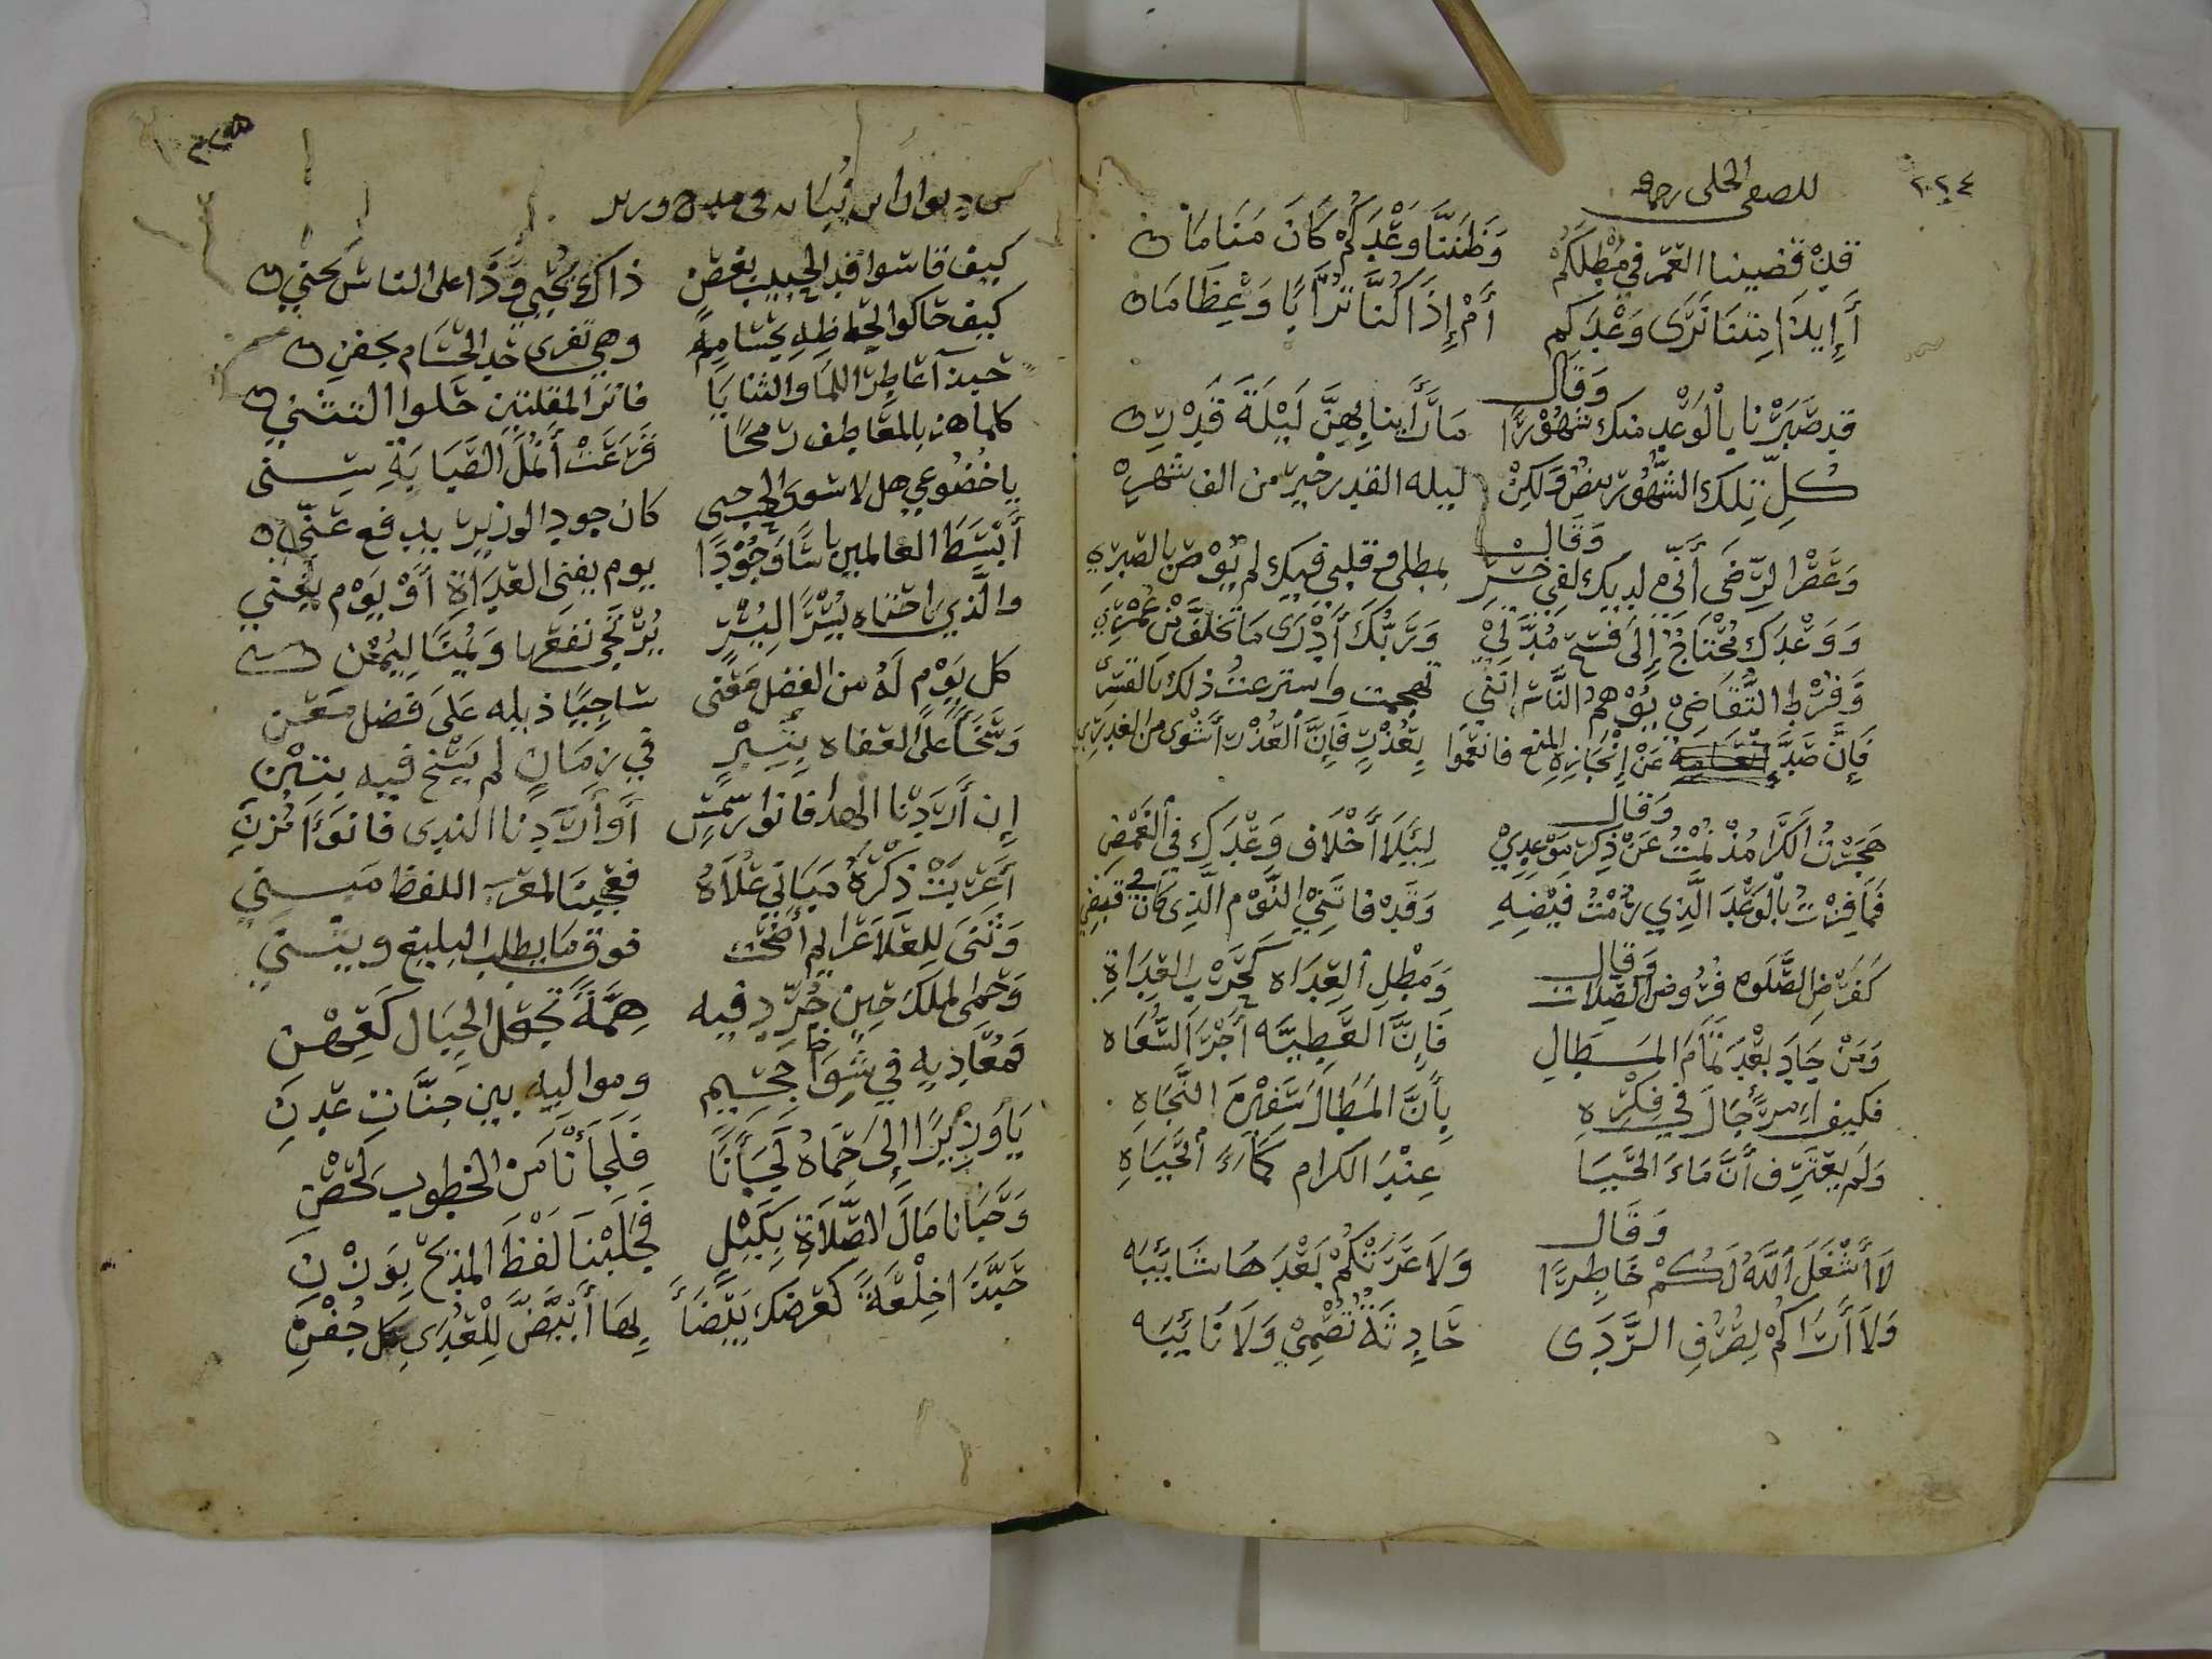 ٢٠٢٤
للصفى الحلى رحمه
قد قضينا العمر فى مطلكم وظننا وعدكم كان مناما
أإيذا متنا نرى وعدكم أم إذا كنا ترابا وعظاما
وقال
قد صبرنا بالوعد منك شهورا ما رأينا بهن ليلة قدر
كل تلك الشهور بيض ولكن ليله القدر خير من الف شهر
وقال
وعصر الرضى أنى لديك لفى خسر بمطلى وقلبى فيك لم يوص بالصبر
ووعدك محتاج إلى فسح مدة لى وربك أدرى ما تخلف من عمرى
وفرط التقاضى يوهم الناس اننى تهجمت واسترعنت ذلك بالقسر
فإن صد عن إنجازه المنع فانعموا بعذر فإن العذر أشوى من الغدر
وقال
هجرت الكرا مذ نمت عن ذكر موعدى ليلا أخلاف وعدك فى الغمض
فما فزت بالوعد الذى رمت فيضه وقد فاتنى النوم الذى كان فى قبضى
وقال
كفرض الصلوه فروض الصلات ومطل العداه كحرب العداة
ومن جاد بعد تمام المطال فإن العطيه أجر السعاه
فكيف امرء جال فى فكره بأن المطال سفين النجاة
ولم يعترف أن ماء الحيا عند الكرام كماء الحياة
وقال
لا أشغل الله لكم خاطرا ولا عرتكم بعدها شايبه
ولا أراكم لصرف الردى حادثة تصمى ولا نايبه
من ديوان ابن نباته فى مدح وزير
كيف قاسوا قد الحبيب بغصن ذاك يجنى وذا على الناس يجنى
كيف حاكوا لحاظه بحسام وهى تفرى حد الحسام بجفن
حبذا عاطر اللما والثنايا فاتر المقلتين حلوا التثنى
كلما هز بالمعاطف رمحا قرعت أنمل الصبابة سنى
يا خضوعى هل لاسود الحب حبى كان جود الوزير يدفع عنى
أبسط العالمين باسا وجودا يوم يفنى العداة أو يوم يغنى
والذى راحتاه يسرا اليسر يرتجى نفعها ويمنا ليمن
كل يوم له من الفضل معنى ساحبا ذيله على فضل معن
وسخا على العفاه بتبر فى زمان لم يسخ فيه بتبن
إن أردنا الهدا فانوار سمت أو أردنا الندى فانواء مزن
أعربت ذكره مبانى علاه فعجبنا لمعرب اللفظ مبنى
وثنى للعلا عزايم أضحت فوق ما يطلب البليغ ويثنى
وحمى الملك حين جرد فيه همة تجعل الجبال كعهن
فمعاديه فى سواء جحيم ومواليه بين جنات عدن
يا وزيرا إلى حماه لجأنا فلجأنا من الخطوب لحصن
وحبانا مال الصلاة بكيل فجلبنا لفظ المديح بوزن
حبذا خلعة كعرضك بيضا بها أبيض للعدى كل جفن